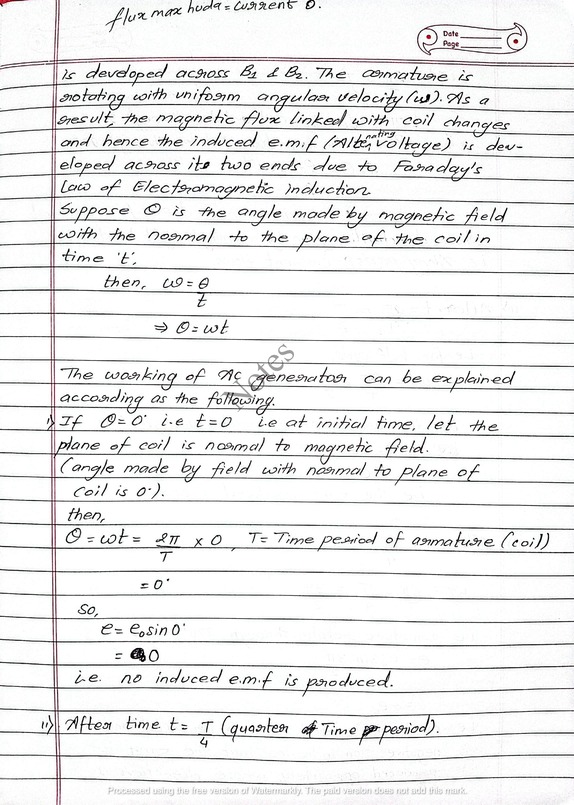 flux max huda = current 0.
Date
Page
is developed across B1 & B2. The armature is
rotating with uniform angular velocity (ω). As a
result, the magnetic flux linked with coil changes
and hence the induced e.m.f (Alternating voltage) is dev-
eloped across its two ends due to Faraday's
Law of Electromagnetic induction.
Suppose θ is the angle made by magnetic field
with the normal to the plane of the coil in
time 't',
then, ω = θ/t
⇒ θ = ωt
Notes
The working of AC generator can be explained
according as the following.
i) If θ = 0° i.e t = 0 i.e at initial time, let the
plane of coil is normal to magnetic field.
(angle made by field with normal to plane of
coil is 0°).
then,
θ = ωt = 2π/T × 0, T = Time period of armature (coil)
= 0°
so,
e = e₀ sin 0°
= 0
i.e. no induced e.m.f is produced.
ii) After time t = T/4 (quarter of Time period).
Processed using the free version of Watermarkly. The paid version does not add this mark.